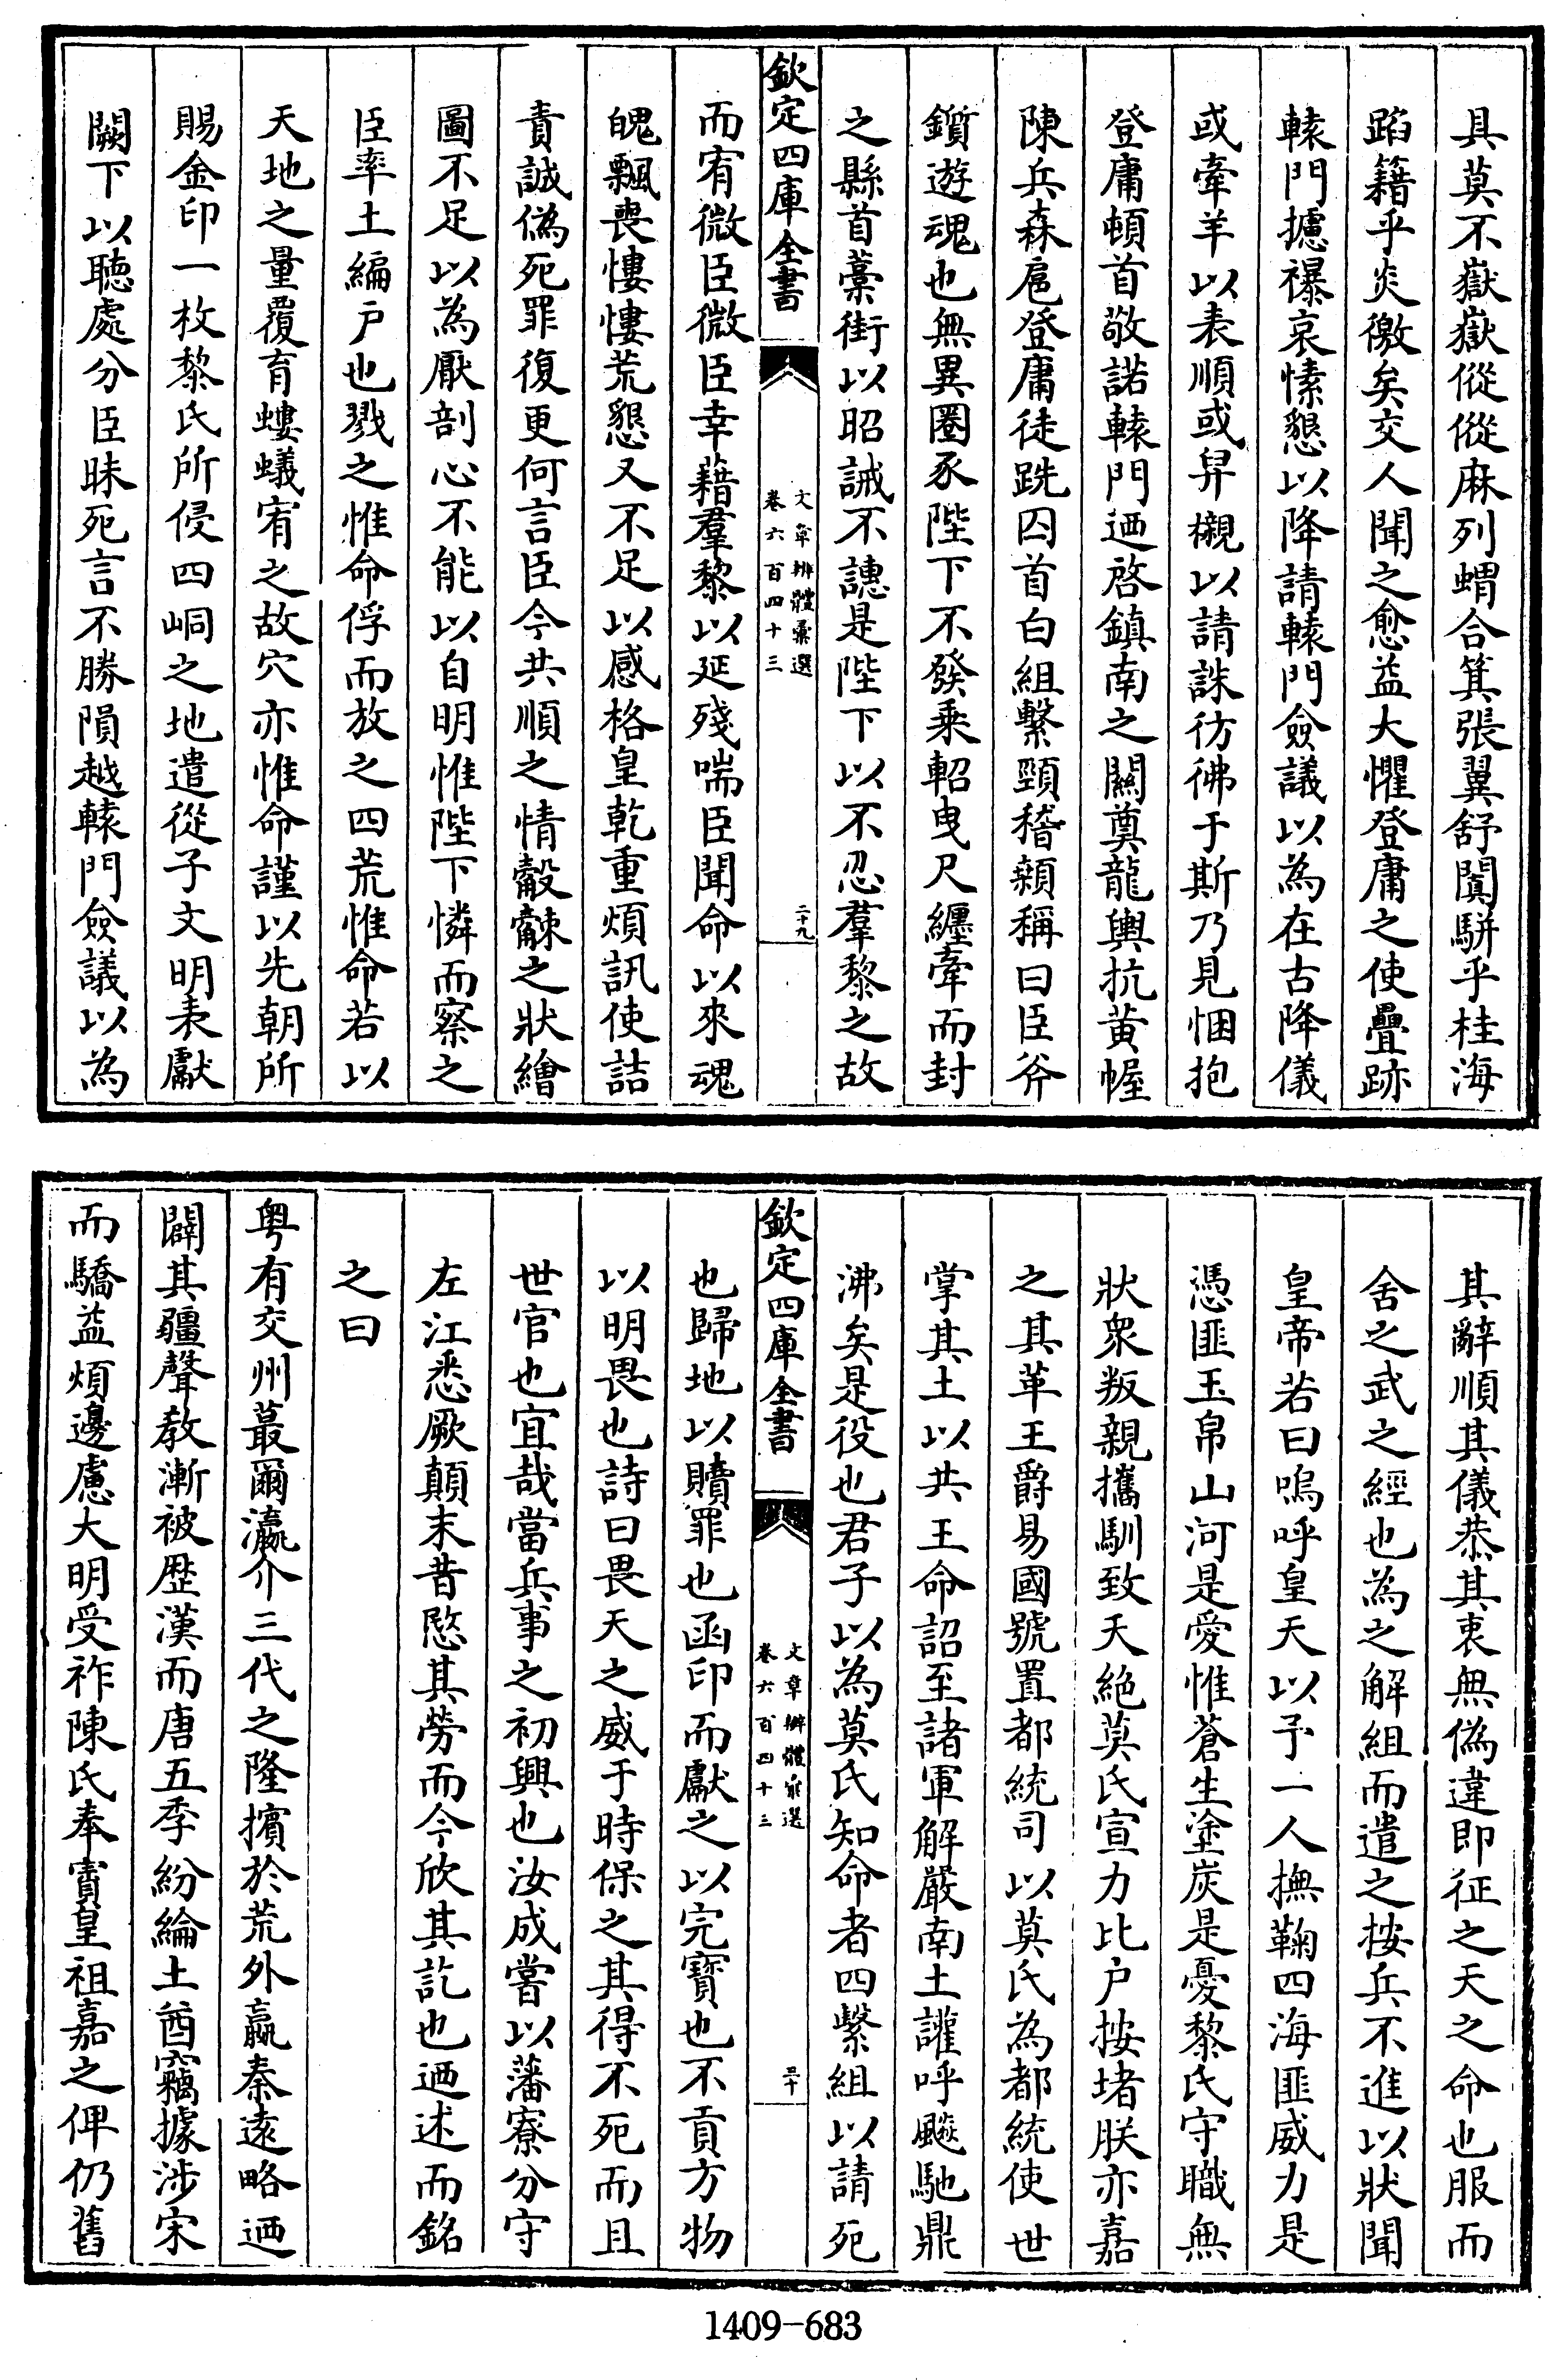 具莫不嶽嶽傱傱麻列蝟合箕張翼舒闐駢乎桂海
蹈籍乎炎徼矣交人聞之愈益大懼登庸之使疊跡
轅門攄𥛝哀愫懇以降請轅門僉議以為在古降儀
或牽羊以表順或舁櫬以請誅彷彿于斯乃見悃抱
登庸頓首敬諾轅門迺啓鎮南之關奠龍輿抗黄幄
陳兵森扈登庸徒跣囚首白組繫頸稽顙稱曰臣斧
鑕遊魂也無異圈豕陛下不發乘軺曳尺纒牽而封
之縣首藁街以昭誡不譓是陛下以不忍羣黎之故
欽定四庫全書
文章辨體彙選
卷六百四十三
二十九
而宥微臣微臣幸藉羣黎以延殘喘臣聞命以來魂
魄飄喪慺慺荒懇又不足以感格皇乾重煩訊使詰
責誠偽死罪復更何言臣今共順之情觳觫之狀繪
圖不足以為厭剖心不能以自明惟陛下憐而察之
臣率土編户也戮之惟命俘而放之四荒惟命若以
天地之量覆育螻蟻宥之故穴亦惟命謹以先朝所
賜金印一枚黎氏所侵四峒之地遣從子文明表獻
闕下以聽處分臣昧死言不勝隕越轅門僉議以為
其辭順其儀恭其衷無偽違即征之天之命也服而
舍之武之經也為之解組而遣之按兵不進以狀聞
皇帝若曰嗚呼皇天以予一人撫鞠四海匪威力是
憑匪玉帛山河是愛惟蒼生塗炭是憂黎氏守職無
狀衆叛親攜馴致天絶莫氏宣力比户按堵朕亦嘉
之其革王爵易國號置都統司以莫氏為都統使世
掌其土以共王命詔至諸軍解嚴南土讙呼飈馳鼎
沸矣是役也君子以為莫氏知命者四縶組以請死
欽定四庫全書
文章辨體彙選
卷六百四十三
三十
也歸地以贖罪也函印而獻之以完寶也不貢方物
以明畏也詩曰畏天之威于時保之其得不死而且
世官也宜哉當兵事之初興也汝成嘗以藩寮分守
左江悉厥顛末昔愍其勞而今欣其訖也迺述而銘
之曰
粤有交州蕞爾瀛介三代之隆擯於荒外嬴秦遠略迺
闢其疆聲教漸被歴漢而唐五季紛綸土酋竊據涉宋
而驕益煩邊慮大明受祚陳氏奉賓皇祖嘉之俾仍舊
1409-683